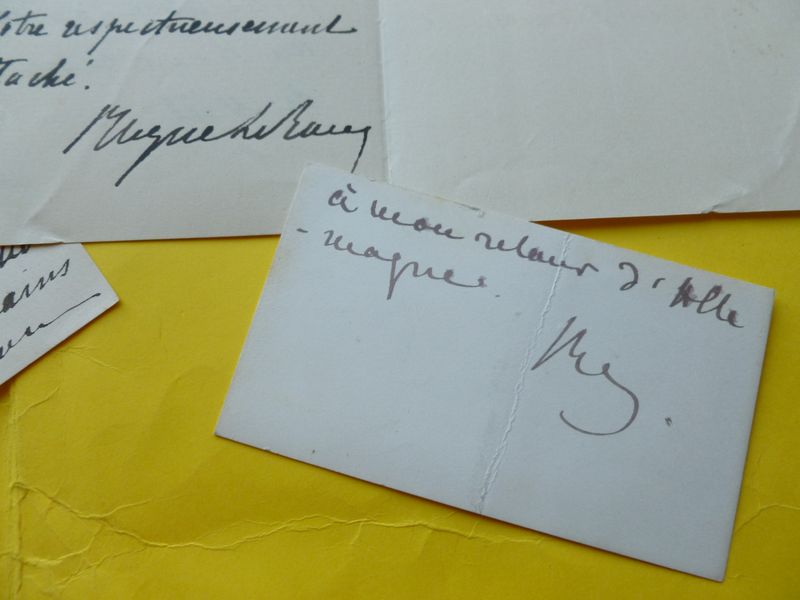 Votre respectueusement
attaché.
Hugues Le Roux
ains
à mon retour d'Alle
-magne.